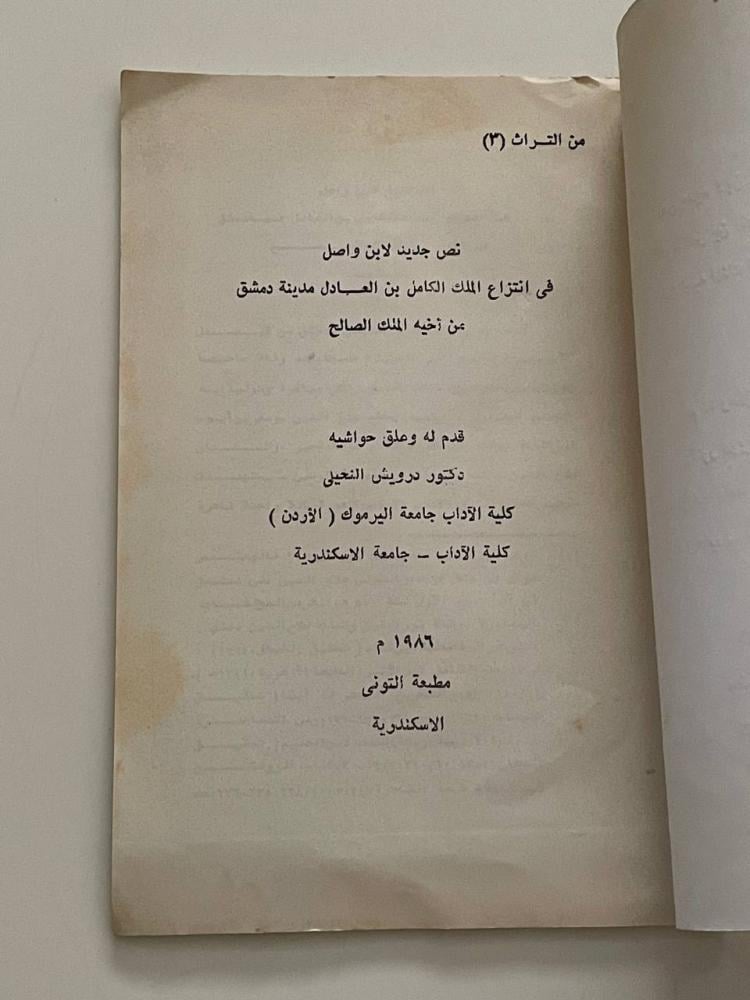 من التراث (٣)
نص جديد لابن واصل
فى انتزاع الملك الكامل بن العادل مدينة دمشق
من أخيه الملك الصالح
قدم له وعلق حواشيه
دكتور درويش النخيلى
كلية الآداب جامعة اليرموك ( الأردن )
كلية الآداب – جامعة الاسكندرية
١٩٨٦ م
مطبعة التونى
الاسكندرية